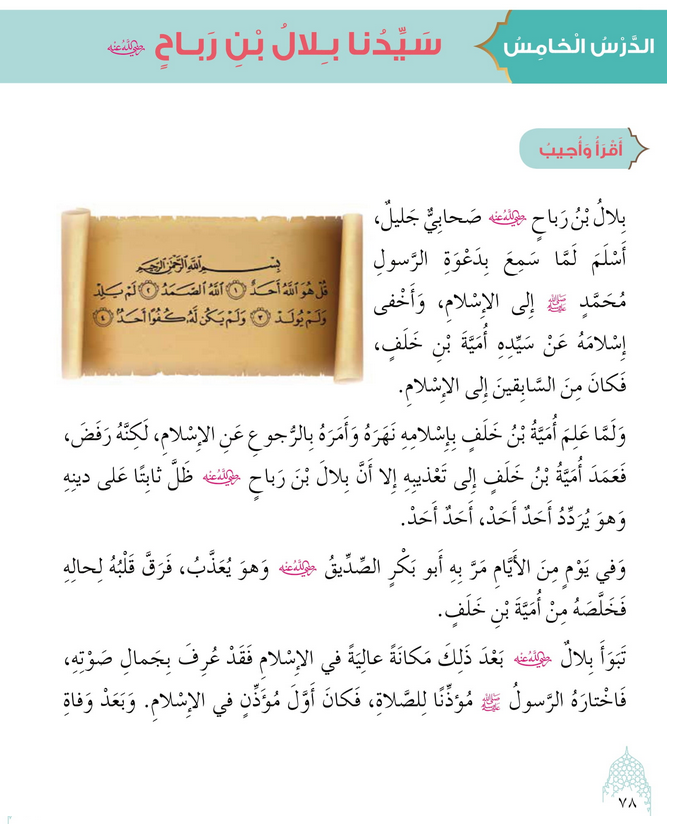 الدَّرْسُ الْخَامِسُ
سَيِّدُنا بِلالُ بْنِ رَبـاحٍ رضي الله عنه
أَقْرَأُ وَأُجيبُ
بِلالُ بْنُ رَباحٍ رضي الله عنه صَحابِيٌّ جَليلٌ،
أَسْلَمَ لَمَّا سَمِعَ بِدَعْوَةِ الرَّسولِ
مُحَمَّدٍ ﷺ إلى الإسْلامِ، وَأَخْفى
إسْلامَهُ عَنْ سَيِّدِهِ أُمَيَّةَ بْنِ خَلَفٍ،
فَكانَ مِنَ السَّابِقينَ إلى الإسْلامِ.
بِسْمِ اللَّهِ الرَّحْمَٰنِ الرَّحِيمِ
قُلْ هُوَ اللَّهُ أَحَدٌ ١ اللَّهُ الصَّمَدُ ٢ لَمْ يَلِدْ
وَلَمْ يُولَدْ ٣ وَلَمْ يَكُن لَّهُ كُفُوًا أَحَدٌ ٤
وَلَمَّا عَلِمَ أُمَيَّةُ بْنُ خَلَفٍ بِإسْلامِهِ نَهَرَهُ وَأَمَرَهُ بِالرُّجوعِ عَنِ الإسْلامِ، لَكِنَّهُ رَفَضَ،
فَعَمَدَ أُمَيَّةُ بْنُ خَلَفٍ إلى تَعْذيبِهِ إلا أَنَّ بِلالَ بْنَ رَباحٍ رضي الله عنه ظَلَّ ثابِتًا عَلى دينِهِ
وَهوَ يُرَدِّدُ أَحَدٌ أَحَدْ، أَحَدٌ أَحَدْ.
وَفي يَوْمٍ مِنَ الأَيَّامِ مَرَّ بِهِ أَبو بَكْرٍ الصِّدِّيقُ رضي الله عنه وَهوَ يُعَذَّبُ، فَرَقَّ قَلْبُهُ لِحالِهِ
فَخَلَّصَهُ مِنْ أُمَيَّةَ بْنِ خَلَفٍ.
تَبَوَأَ بِلالٌ رضي الله عنه بَعْدَ ذَلِكَ مَكانَةً عالِيَةً في الإسْلامِ فَقَدْ عُرِفَ بِجَمالِ صَوْتِهِ،
فَاخْتارَهُ الرَّسولُ ﷺ مُؤذِّنًا لِلصَّلاةِ، فَكانَ أَوَّلَ مُؤَذِّنٍ في الإسْلامِ. وَبَعَدْ وَفاةِ
٧٨